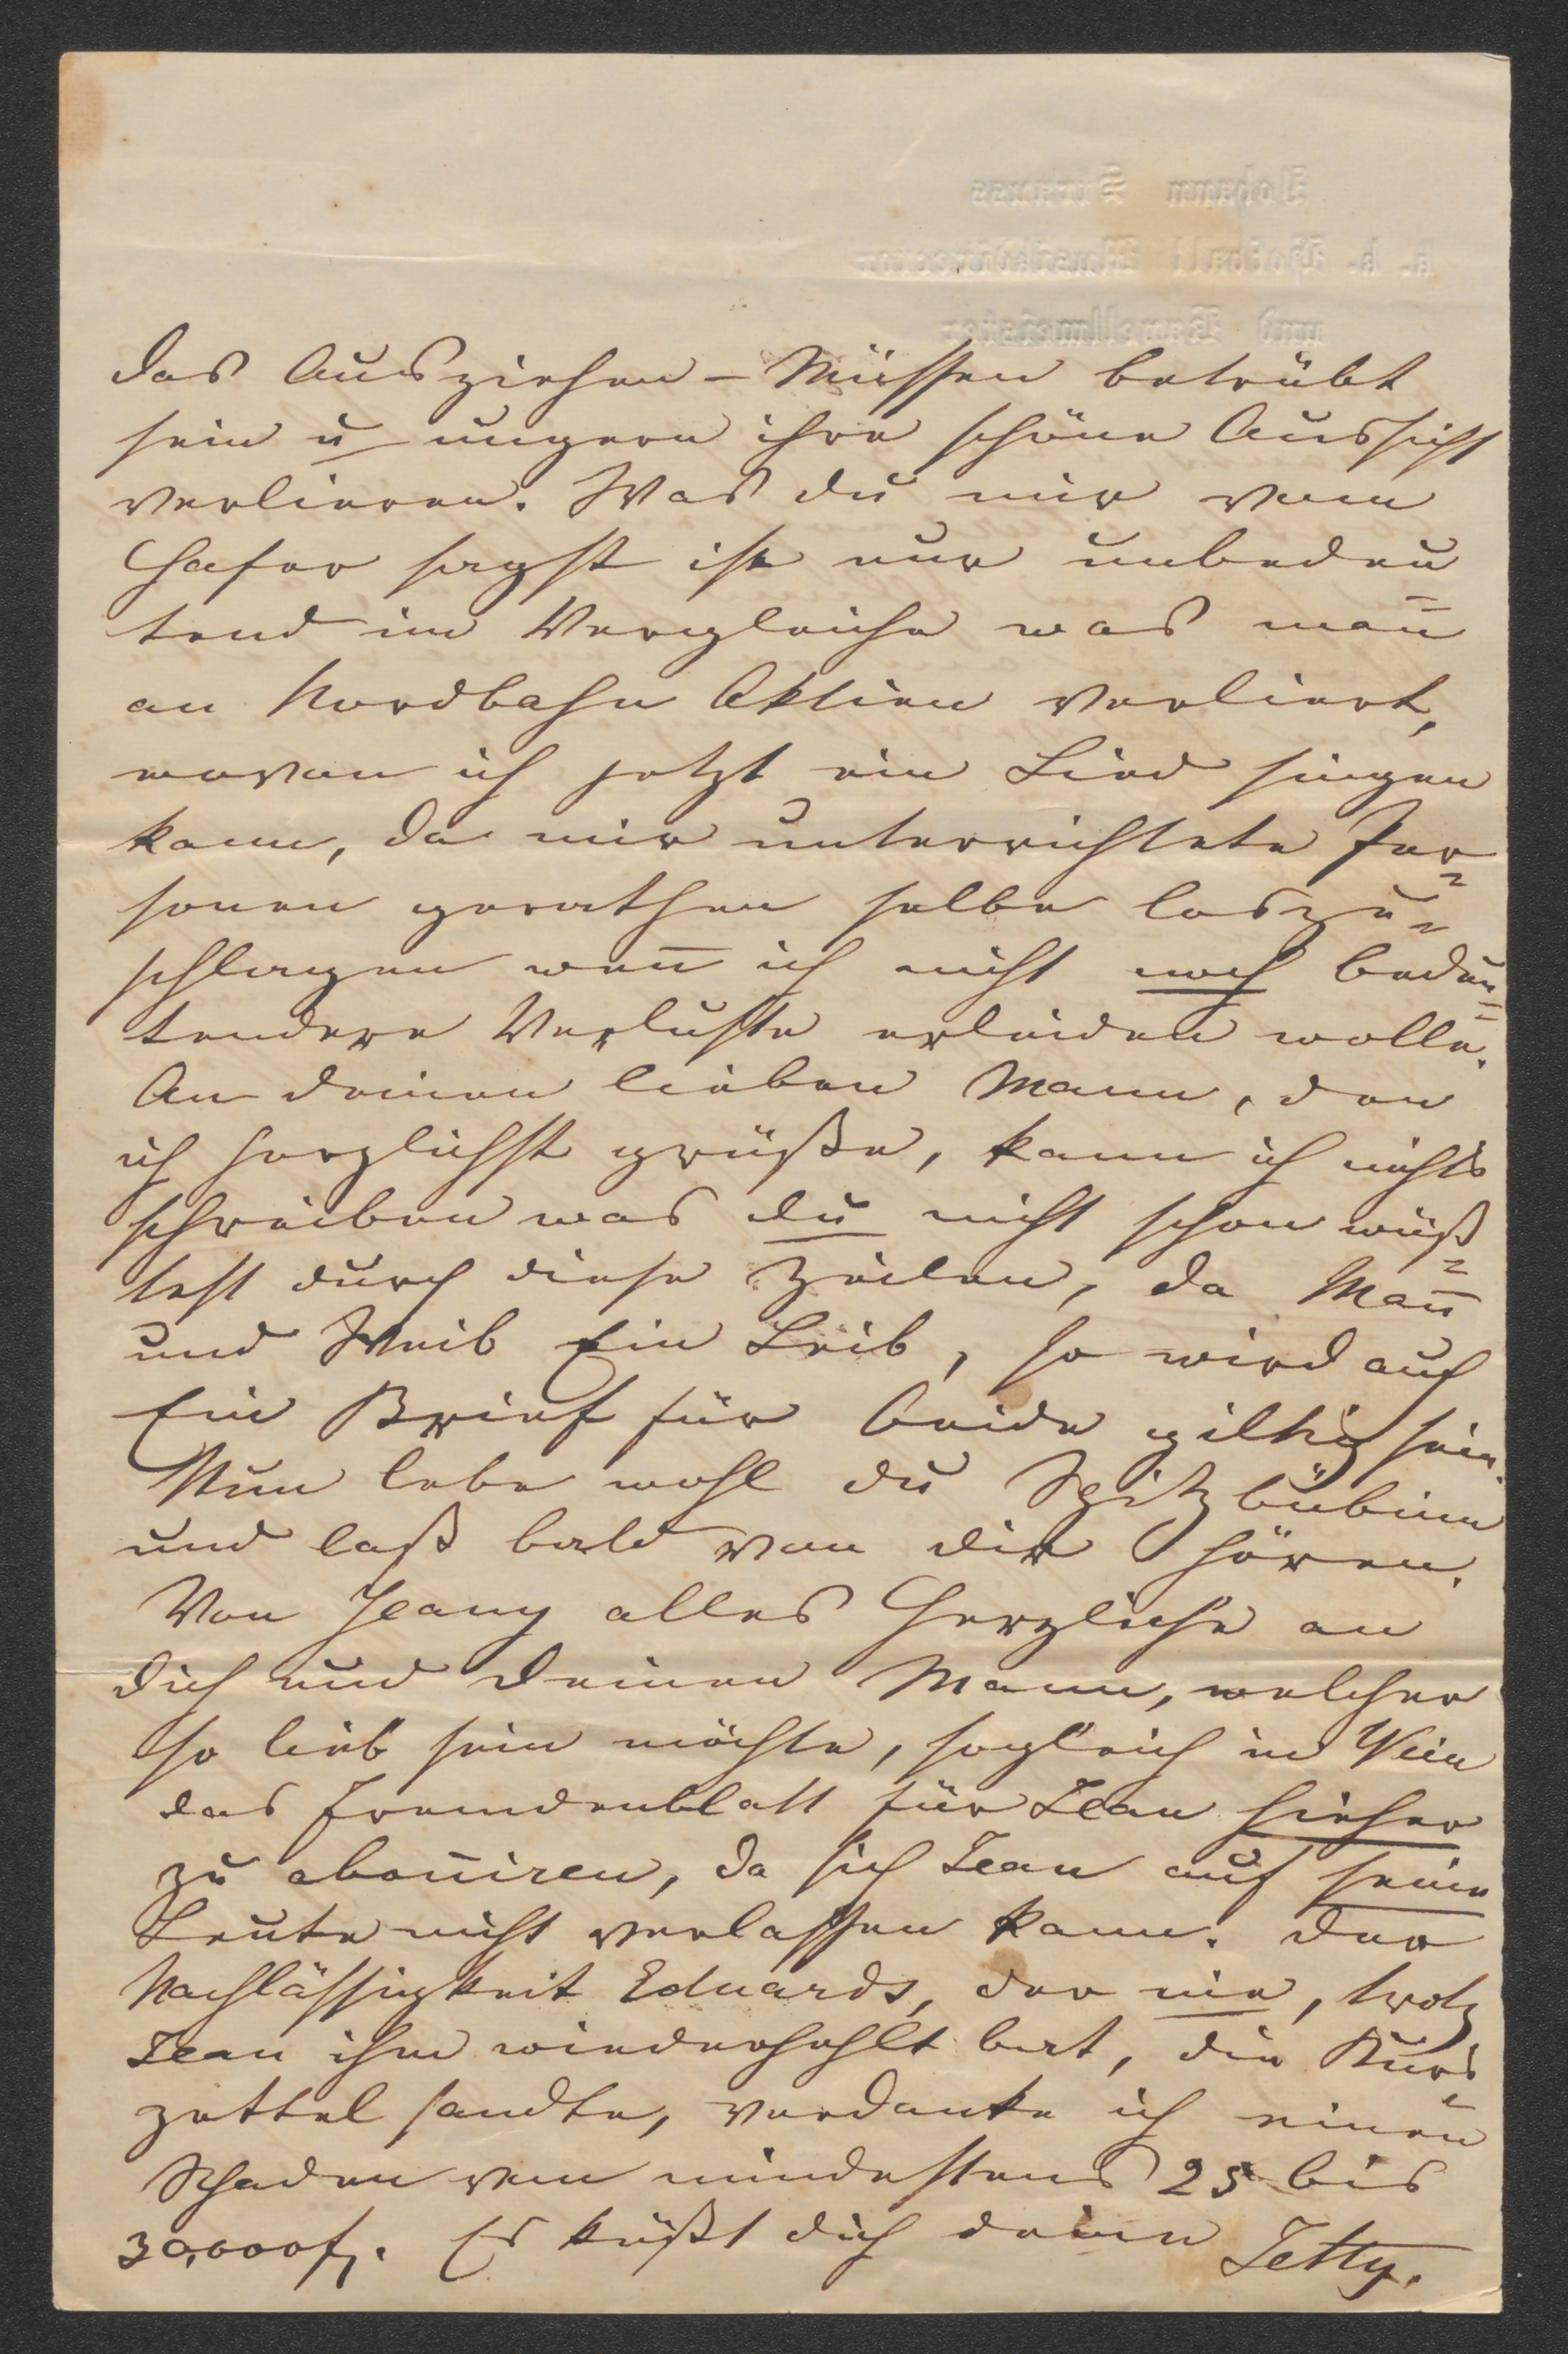 Johann Strauss
k. k. Hofball Musikdirector
und Kapellmeister
das Ausziehen-Müssen betrübt
sein u ungern ihre schöne Aussicht
verlieren. Was du mir vom
Hafer sagst ist nur unbedeu
tend im Vergleiche was man̅
an Nordbahn Aktien verliert,
wovon ich jetzt ein Lied singen
kann, da mir unterrichtete Per=
sonen gerathen selbe loszu=
schlagen wen̅ ich nicht noch bedeu=
tendere Verluste erleiden wolle.
An deinen lieben Mann, den
ich herzlichst grüße, kann ich nichts
schreiben was du nicht schon wüß=
test durch diese Zeilen, da Man̅
und Weib Ein Leib, so wird auch
Ein Brief für beide giltig sein.
Nun lebe wohl du Spitzbübinn
und laß bald von dir hören.
Von Jeany alles Herzliche an
dich und deinen Mann, welcher
so lieb sein möchte, sogleich in Wien
das Fremdenblatt für Jean hieher
zu abon̅iren, da sich Jean auf seine
Leute nicht verlassen kann. Der
Nachlässigkeit Eduards, der nie, trotz
Jean ihm wiederhohlt bat, die Kurs=
zettel sandte, verdanke ich einen
Schaden von mindestens 25 bis
30,000 fl. Es küßt dich deine Jetty.